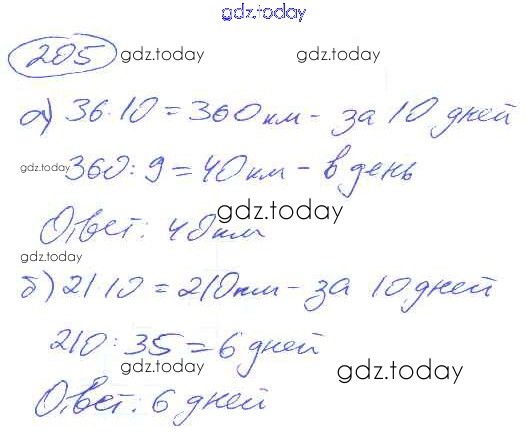 gdz.today
205 gdz.today
а) 36·10=360км - за 10 дней
gdz.today
gdz.today 360:9=40км - в день
Ответ: 40км
gdz.today
gdz.today
б) 21·10=210км - за 10 дней
210:35=6 дней
gdz.today gdz.today
Ответ: 6 дней